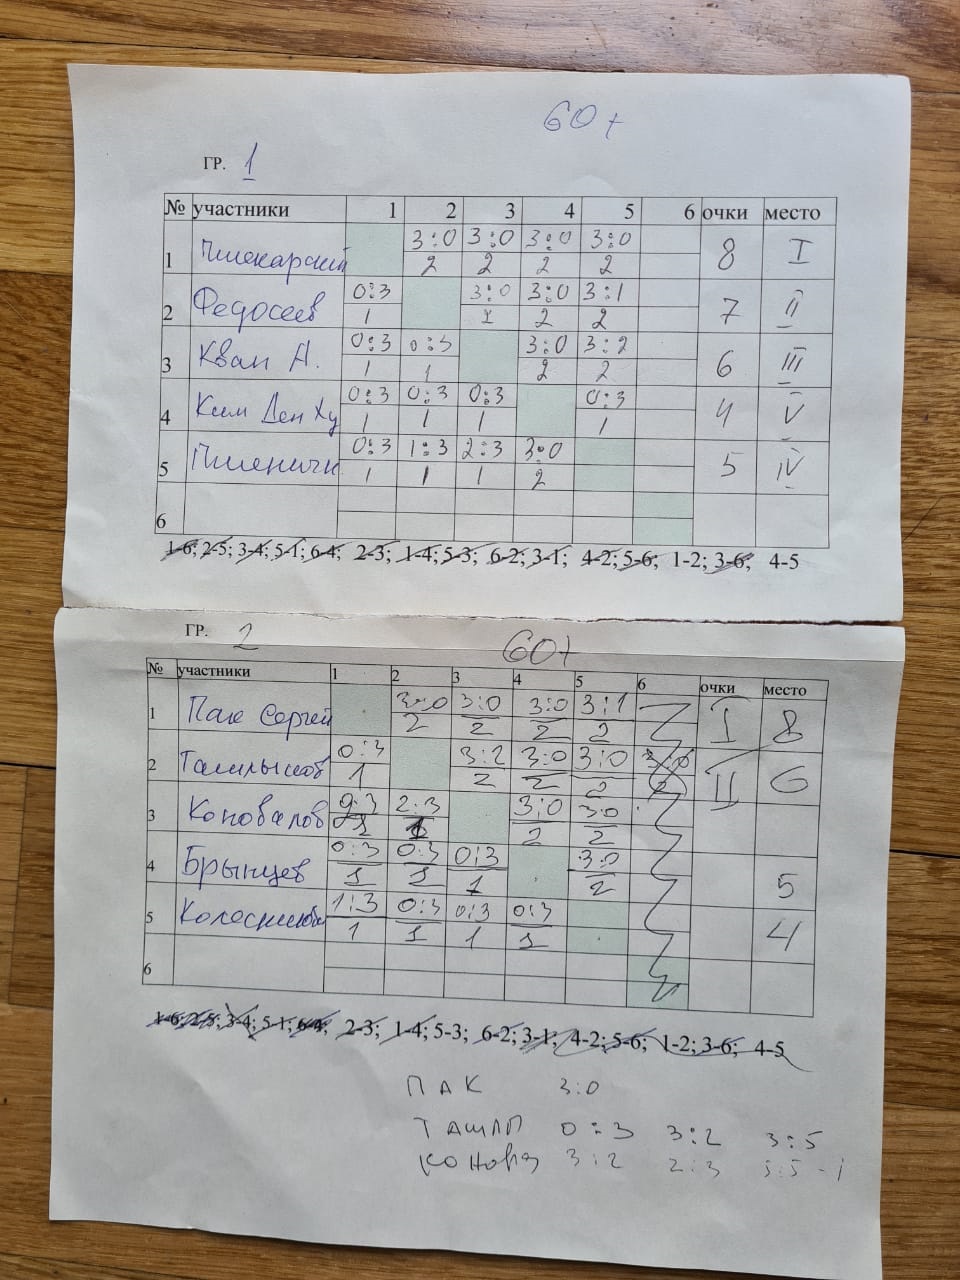 60+
ГР. 1
№ участники 1 2 3 4 5 6 очки место
1 3:0 3:0 3:0 3:0 8 I
2 2 2 2
2 Федосеев 0:3 3:0 3:0 3:1 7 II
1 2 2 2
3 Кван А. 0:3 0:3 3:0 3:2 6 III
1 1 2 2
4 Ким Ден Ху 0:3 0:3 0:3 0:3 4 V
1 1 1 1
5 0:3 1:3 2:3 3:0 5 IV
1 1 1 2
6
1-6; 2-5; 3-4; 5-1; 6-4; 2-3; 1-4; 5-3; 6-2; 3-1; 4-2; 5-6; 1-2; 3-6; 4-5
ГР. 2 60+
№ участники 1 2 3 4 5 6 очки место
1 Пак Сергей 3:0 3:0 3:0 3:1 I 8
2 2 2 2
2 0:3 3:2 3:0 3:0 II 6
1 2 2 2
3 Коновалов 2:3 3:0 3:0
1 2 2
4 Брынцев 0:3 0:3 0:3 3:0 5
1 1 1 2
5 1:3 0:3 0:3 0:3 4
1 1 1 1
6
1-6; 2-5; 3-4; 5-1; 6-4; 2-3; 1-4; 5-3; 6-2; 3-1; 4-2; 5-6; 1-2; 3-6; 4-5
ПАК 3:0
ТАШЛ 0:3 3:2 3:5
КОНОВ 3:2 2:3